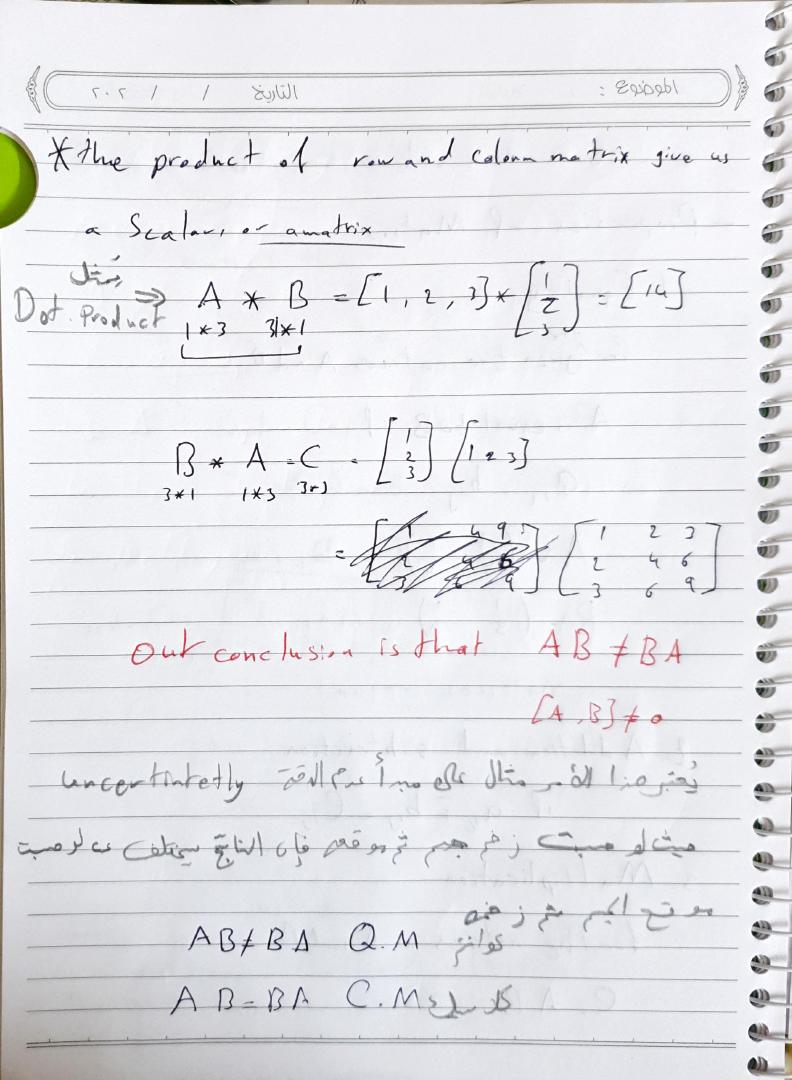 الموضوع : التاريخ / / ٢٠٢
* the product of row and colonn matrix give us
a Scalar, or amatrix
يُمثل
Dot. Product ⇒ A * B = [1, 2, 3] * [1 2 3] = [14]
1*3 3*1
B * A = C = [1 2 3] [1 2 3]
3*1 1*3 3*3
= [1 2 3
2 4 6
3 6 9]
Our conclusion is that AB ≠ BA
[A, B] ≠ 0
يُعتبر هذا الأمر مثال على مبدأ عدم الدقة uncertintetly
حيث لو حسبت زخم جسم ثم موقعه فإن الناتج سيختلف عن لو حسبت
موقع الجسم ثم زخمه
AB ≠ BA Q.M كوانتم
AB = BA C.M كلاسيك